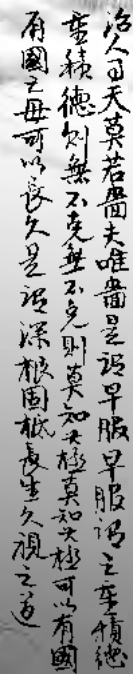 治人事天莫若嗇夫唯嗇是謂早服早服謂之重積德
重積德則無不克無不克則莫知其極莫知其極可以有國
有國之母可以長久是謂深根固柢長生久視之道